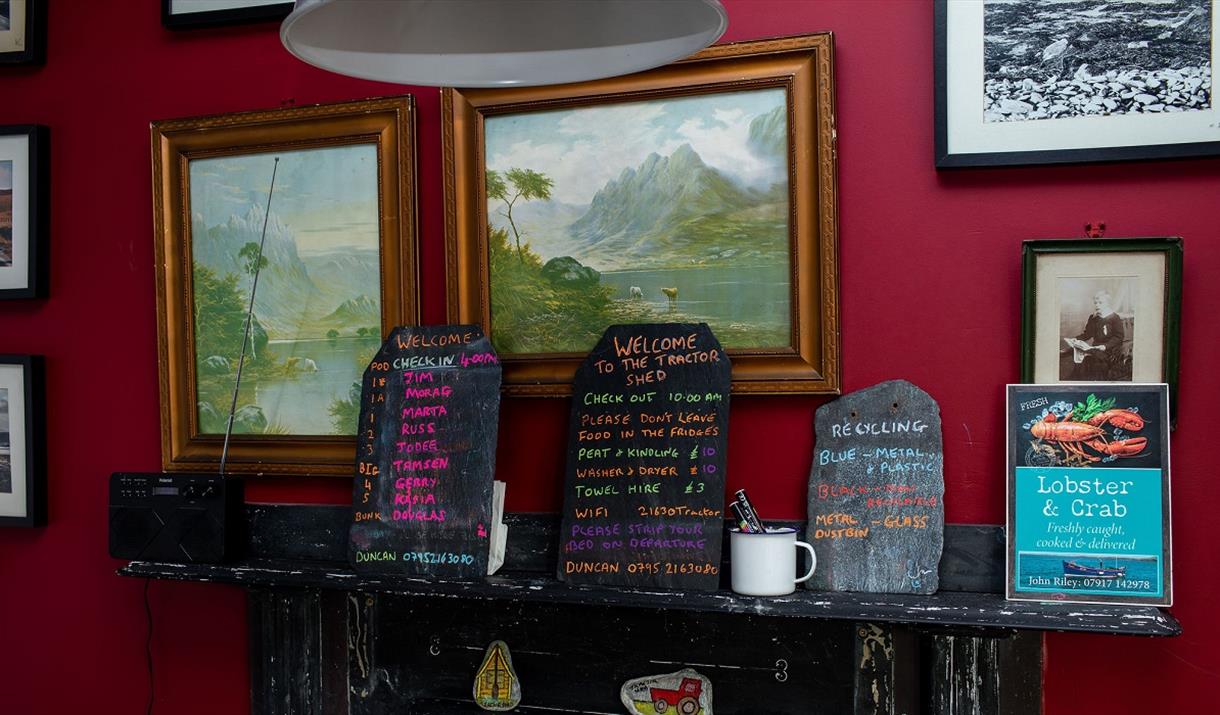 WELCOME
POD CHECK IN 4:00PM
JIM
1A MORAG
1 MARTA
2 RUSS
3 JODEE
BIG TAMSEN
4 GERRY
5 KASIA
BUNK DOUGLAS
DUNCAN 07952163080
WELCOME
TO THE TRACTOR
SHED
CHECK OUT 10:00 AM
PLEASE DON'T LEAVE
FOOD IN THE FRIDGES
PEAT & KINDLING £10
WASHER & DRYER £10
TOWEL HIRE £3
WIFI 21630Tractor
PLEASE STRIP YOUR
BED ON DEPARTURE
DUNCAN 0795 2163080
RECYCLING
BLUE - METAL
& PLASTIC
BLACK - NON
RECYCLABLE
METAL - GLASS
DUSTBIN
FRESH
Lobster
& Crab
Freshly caught,
cooked & delivered
John Riley: 07917 142978
Polaroid